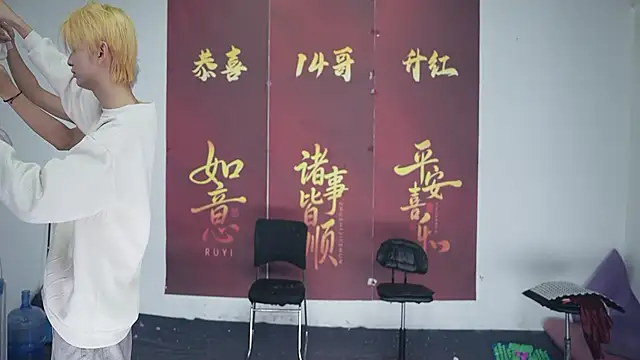 恭喜
14哥
升红
如意
RUYI
诸事皆顺
平安喜乐